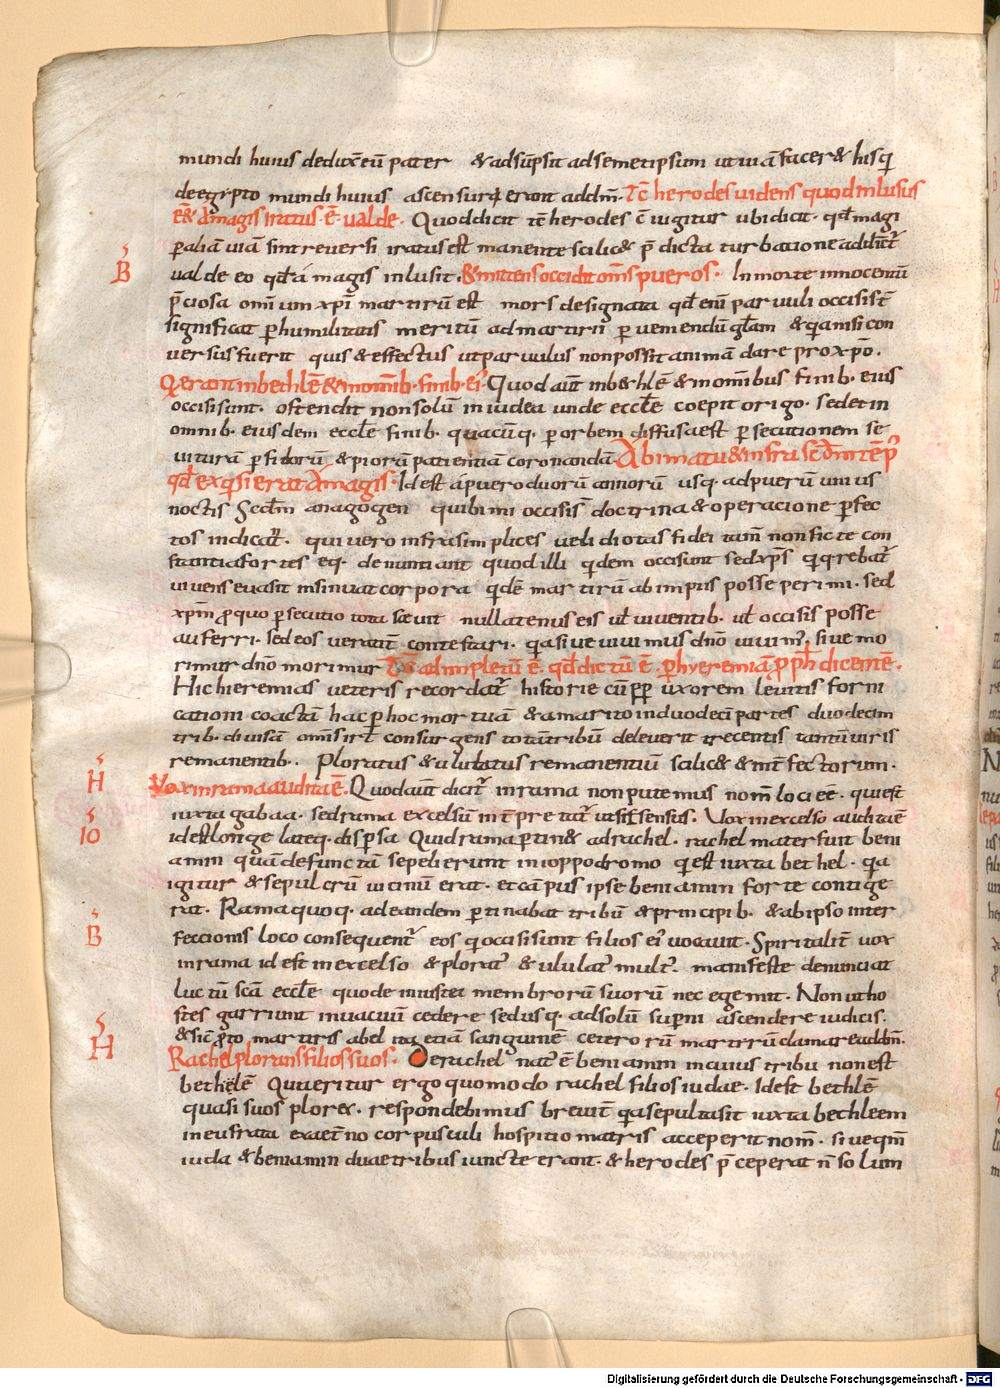 mundi huius deduxẽ eũ pater & adsũpsit ad semetipsum ut uiã facer& hisq
de egypto mundi huius ascensuri erant ad dñm. Tc̃ herodes uidens quod inlusus
ẽ& a magis iratus ẽ ualde. Quod dicit tc̃ herodes ẽ iugitur ubi dicit. qđ magi
ꝑ aliã uiã sint reuersi iratus est manente scilic& p̃dicta turbatione additũ
ualde eo qđ a magis inlusit. & mittens occidit om̃s pueros. In morte innocentũ
p̃ciosa omnium xp̃i martirũ est mors designata qđ enim paruuli occisi st̃
significat ꝑ humilitatis meritũ ad martirii ꝑueniendũ gl̃am & q̃a nisi con
uersus fuerit quis & effectus ut paruulus non possit animã dare pro xp̃o.
Q̃ erant in bethleẽ & in omnib. finib. ei. Quod aut̃ in b&hlẽ & in omnibus finib. eius
occisi sunt. ostendit non solũ in iudea unde eccl̃e coepit origo. sed et in
omnib. eiusdem eccl̃e finib. quacũq. ꝑ orbem diffusa est ꝑsecutionem se
uiturã ꝑfidorũ & piorũ patientiã coronandã. A bimatu & infra sc̃dm tẽp
qđ exq̃sierat a magis. Id est a puero duorũ annorũ usq. ad puerũ unius
noctis Sc̃dm anagogen qui bimi occisi s̃ doctrina & operacione ꝑfec
tos indicat̃. qui uero infra simplices uel idiotas fidei tam̃ non ficte con
stantia fortes eq. denuntiant quod illi q̃dem occisi sunt sed xp̃s qui q̃rebat̃
uiuens euasit insinuat corpora q̃dẽ martirũ ab impiis posse perimi. sed
xp̃m ꝓ quo ꝑsecutio tota sæuit nullatenus eis uł uiuentib. uł occisis posse
auferri. sed eos ueraciт̃ contestari. q̃a siue uiuimus dn̄o uiuim̃. siue mo
rimur dn̄o morimur Tc̃ adimpletũ ẽ. qđ dictũ ẽ. ꝑ hyeremiã ꝓph̃ dicentẽ.
Hic hieremias ueteris recordat̃ historie cũ ꝓp̃ uxorem leuitis forni
cationi coactã hac ꝑ hoc mortuã & a marito in duodecĩ partes duodecim
trib. diuisã om̃s isrł consurgens totũ tribũ deleuerit trecentis tantũ uiris
remanentib.. Ploratus & ululatus remanentiũ scilic& & intfectorum.
5
B
5
H
5
10
5
B
5
H
Uox in rama audita ẽ. Quod aut̃ dicit̃ in rama non putemus nom̃ loci eẽ. qui est
iuxta gabaa. sed rama excelsũ int̃pretat̃ ut sit sensus. Uox in excelso audita ẽ
id est longe lateq. disꝑsa Quid rama ꝑtin& ad rachel. rachel mater fuit beni
amin quã defunctã sepelierunt in ioppodromo q̃ est iuxta bethel. q̃a
igitur & sepulcrũ uicinũ erat. et cãpus ipse beniamin forte contige
rat. Rama quoq. ad eandem ꝑtinabat tribũ & principib. & ab ipso inter
feccionis loco consequent̃ eos qui occisi sunt filios ei uocauit. Spiritalit̃ uox
in rama id est in excelso & plorat̃ & ululat̃ mult̃. manifeste denunciat
luctũ scã eccl̃e quo de iniusta membrorũ suorũ nece gemit. Non ut ho
stes garriunt in uacuũ cedere sed usq. ad solũ suꝑni ascendere iudicis.
& sic ꝓto martiris abel ita etiã sanguinẽ ceterorũ martirũ clamare ad dm̃.
Rachel plorans filios suos. De rachel nat̃ ẽ beniamin in cuius tribu non est
bethelẽ Quæritur ergo quomodo rachel filios iudae. Id est bethlẽ
quasi suos plor&. respondebimus breuit̃ q̃a sepulta sit iuxta bethleem
in eufrata ex aet̃no corpusculi hospitio matris acceperit nom̃. siue qm̃
iuda & beniamin duae tribus iuncte erant. & herodes p̃ceperat ñ solum
Digitalisierung gefördert durch die Deutsche Forschungsgemeinschaft - DFG